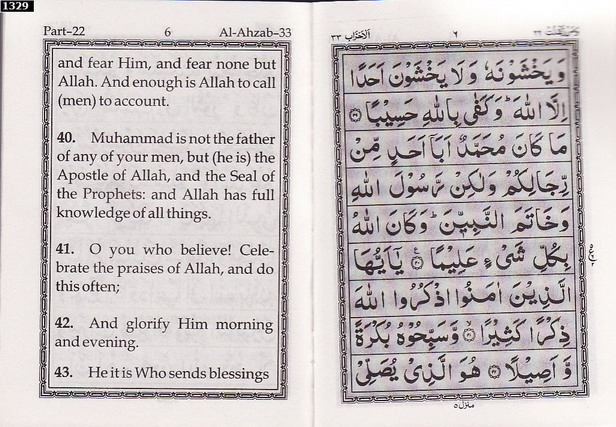 1329
Part–22 6 Al-Ahzab–33
and fear Him, and fear none but
Allah. And enough is Allah to call
(men) to account.
40. Muhammad is not the father
of any of your men, but (he is) the
Apostle of Allah, and the Seal of
the Prophets: and Allah has full
knowledge of all things.
41. O you who believe! Cele-
brate the praises of Allah, and do
this often;
42. And glorify Him morning
and evening.
43. He it is Who sends blessings
الاحزاب ٣٣ ٦ ومن يقنت ٢٢
وَيَخْشَوْنَهٗ وَلَا يَخْشَوْنَ اَحَدًا
اِلَّا اللّٰهَ ؕ وَكَفٰى بِاللّٰهِ حَسِيْبًا ۝٣٩
مَا كَانَ مُحَمَّدٌ اَبَآ اَحَدٍ مِّنْ
رِّجَالِكُمْ وَلٰكِنْ رَّسُوْلَ اللّٰهِ
وَخَاتَمَ النَّبِيّٖنَ ؕ وَكَانَ اللّٰهُ
بِكُلِّ شَيْءٍ عَلِيْمًا ۝٤٠ يٰۤاَيُّهَا
الَّذِيْنَ اٰمَنُوا اذْكُرُوا اللّٰهَ
ذِكْرًا كَثِيْرًا ۝٤١ وَّسَبِّحُوْهُ بُكْرَةً
وَّ اَصِيْلًا ۝٤٢ هُوَ الَّذِيْ يُصَلِّيْ
منزل ٥